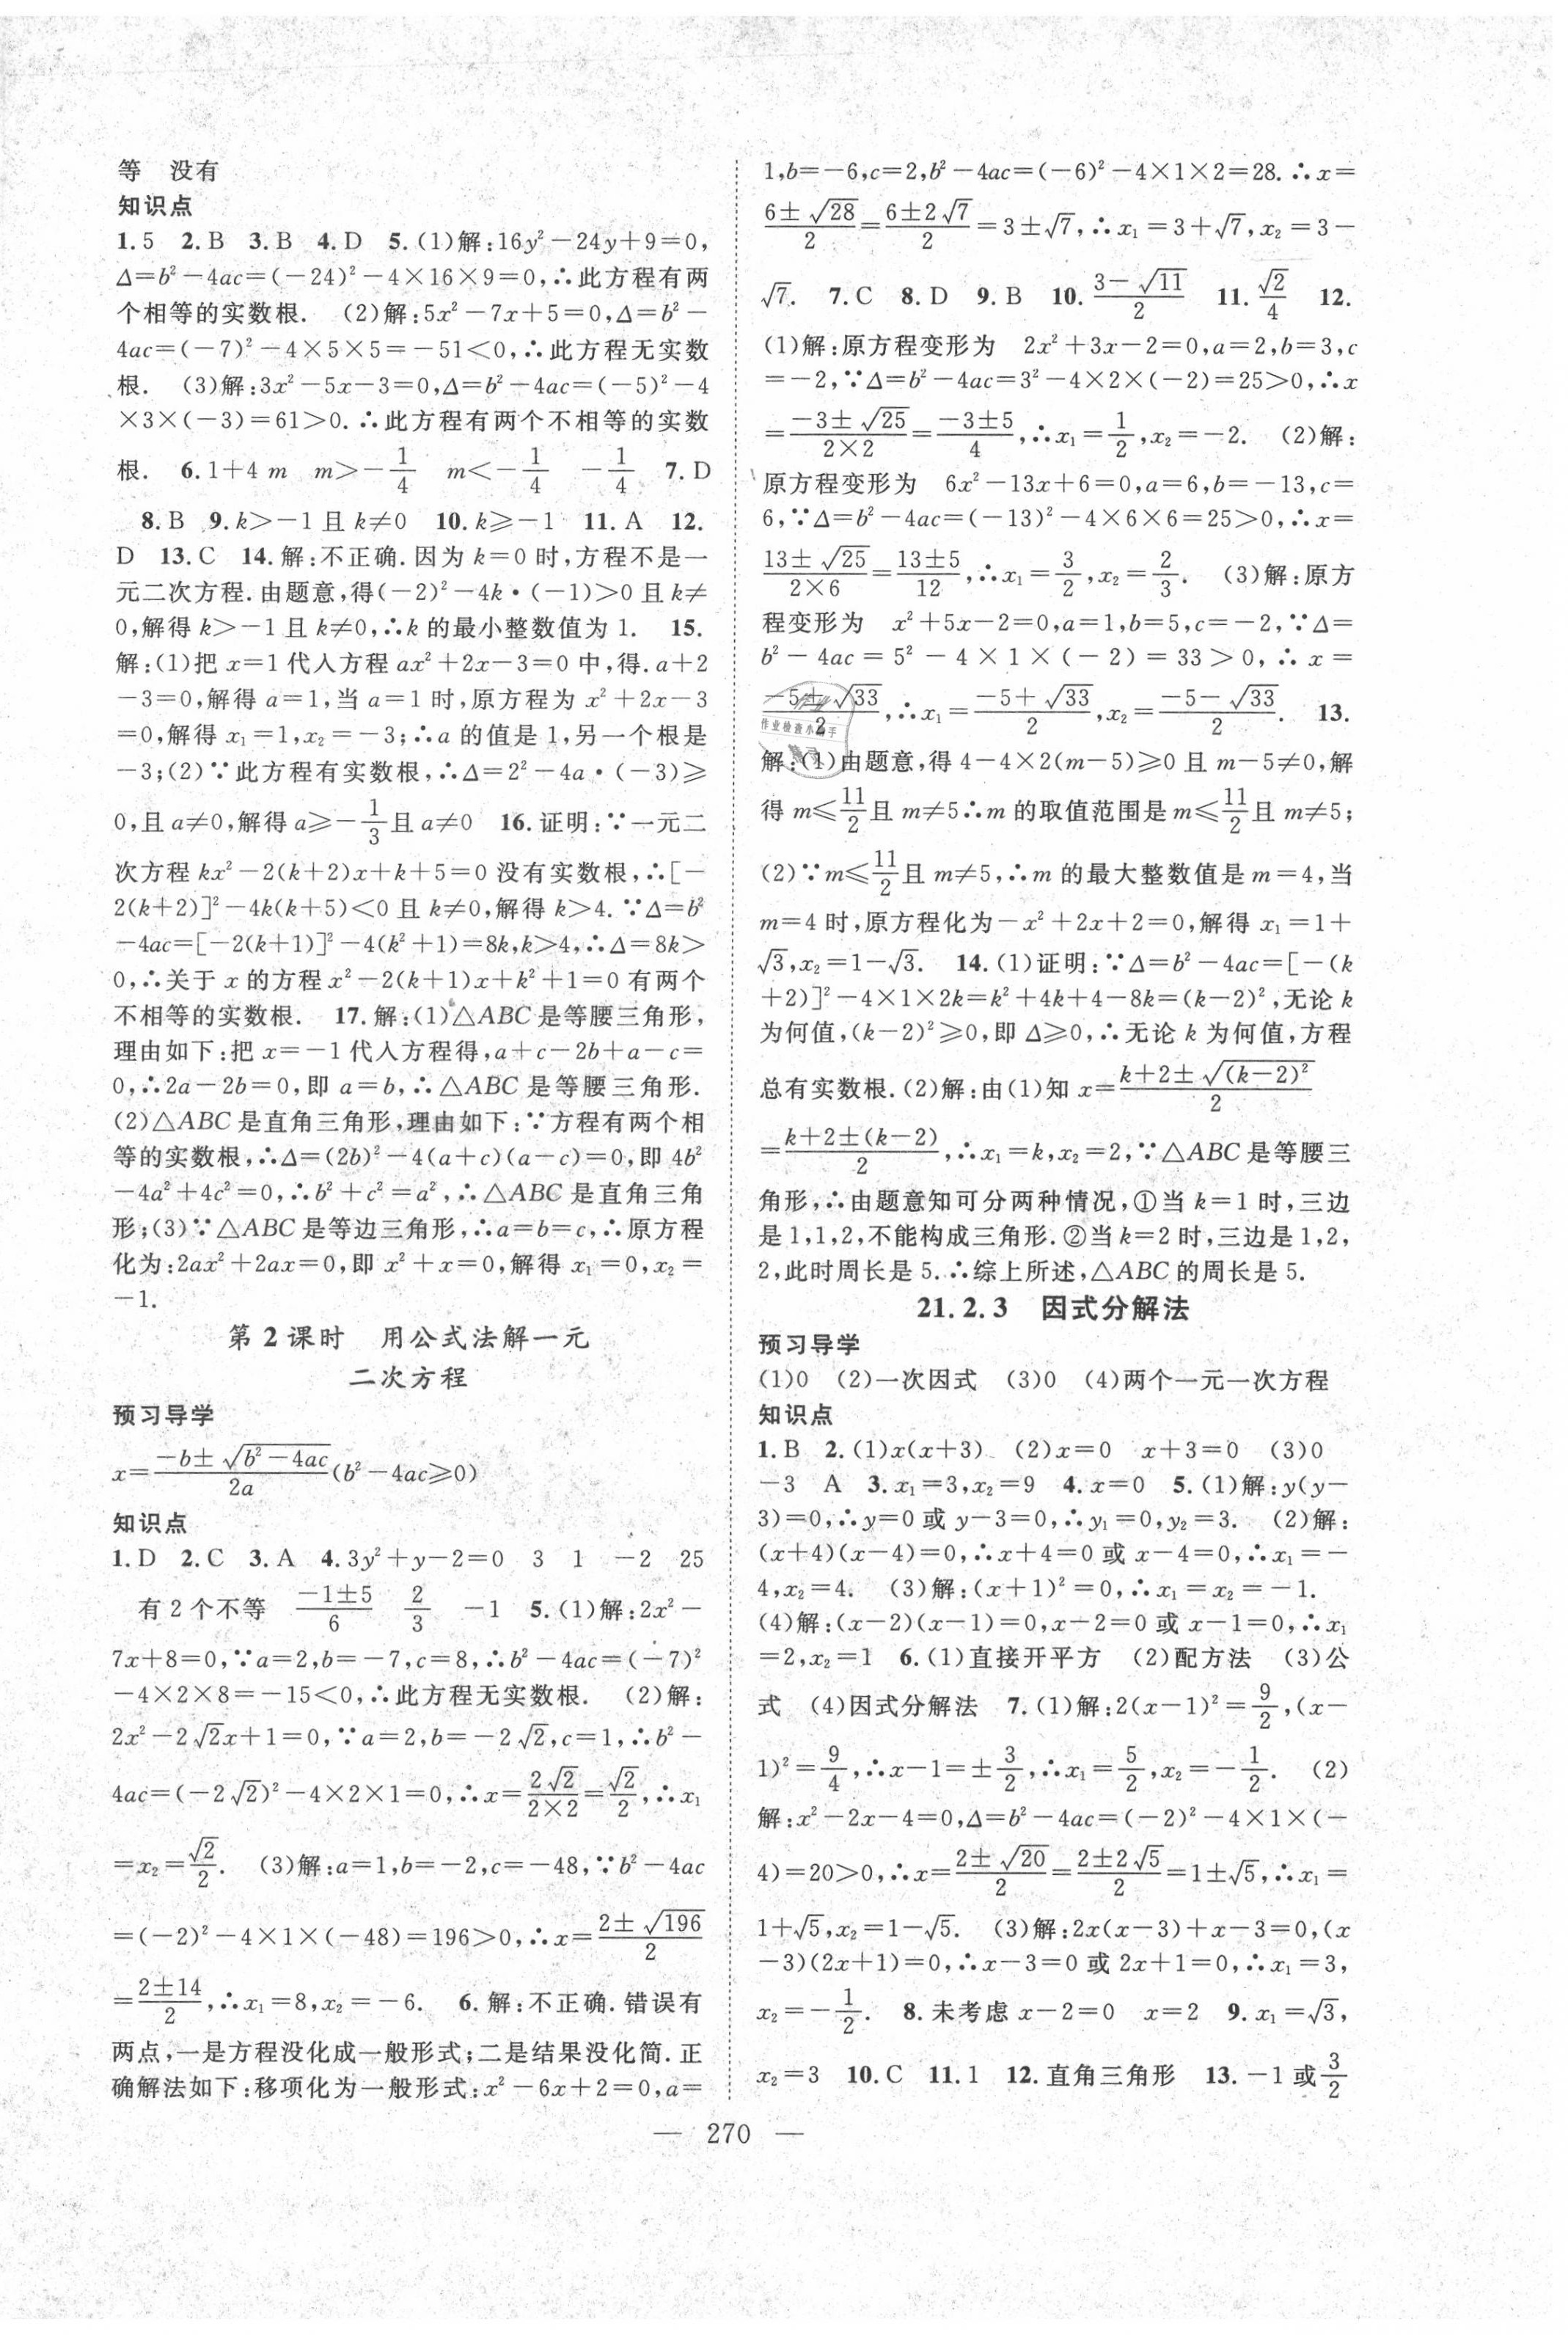 等　没有
知识点
1.5　2.B　3.B　4.D　5.(1)解:16y²－24y＋9＝0,
Δ＝b²－4ac＝(－24)²－4×16×9＝0,∴此方程有两
个相等的实数根.　(2)解:5x²－7x＋5＝0,Δ＝b²－
4ac＝(－7)²－4×5×5＝－51<0,∴此方程无实数
根.　(3)解:3x²－5x－3＝0,Δ＝b²－4ac＝(－5)²－4
×3×(－3)＝61>0.∴此方程有两个不相等的实数
根.　6.1＋4 m　m>－1/4　m<－1/4　－1/4　7.D
8.B　9.k>－1 且 k≠0　10.k≥－1　11.A　12.
D　13.C　14.解:不正确.因为 k＝0 时,方程不是一
元二次方程.由题意,得(－2)²－4k·(－1)>0 且 k≠
0,解得 k>－1 且 k≠0,∴k 的最小整数值为 1.　15.
解:(1)把 x＝1 代入方程 ax²＋2x－3＝0 中,得.a＋2
－3＝0,解得 a＝1,当 a＝1 时,原方程为 x²＋2x－3
＝0,解得 x₁＝1,x₂＝－3;∴a 的值是 1,另一个根是
－3;(2)∵此方程有实数根,∴Δ＝2²－4a·(－3)≥
0,且 a≠0,解得 a≥－1/3且 a≠0　16.证明:∵一元二
次方程 kx²－2(k＋2)x＋k＋5＝0 没有实数根,∴[－
2(k＋2)]²－4k(k＋5)<0 且 k≠0,解得 k>4.∵Δ＝b²
－4ac＝[－2(k＋1)]²－4(k²＋1)＝8k,k>4,∴Δ＝8k>
0,∴关于 x 的方程 x²－2(k＋1)x＋k²＋1＝0 有两个
不相等的实数根.　17.解:(1)△ABC 是等腰三角形,
理由如下:把 x＝－1 代入方程得,a＋c－2b＋a－c＝
0,∴2a－2b＝0,即 a＝b,∴△ABC 是等腰三角形.
(2)△ABC 是直角三角形,理由如下:∵方程有两个相
等的实数根,∴Δ＝(2b)²－4(a＋c)(a－c)＝0,即 4b²
－4a²＋4c²＝0,∴b²＋c²＝a²,∴△ABC 是直角三角
形;(3)∵△ABC 是等边三角形,∴a＝b＝c,∴原方程
化为:2ax²＋2ax＝0,即 x²＋x＝0,解得 x₁＝0,x₂＝
－1.
第 2 课时　用公式法解一元
二次方程
预习导学
x＝(－b±√(b²－4ac))/2a(b²－4ac≥0)
知识点
1.D　2.C　3.A　4.3y²＋y－2＝0　3　1　－2　25
有 2 个不等　(－1±5)/6　2/3　－1　5.(1)解:2x²－
7x＋8＝0,∵a＝2,b＝－7,c＝8,∴b²－4ac＝(－7)²
－4×2×8＝－15<0,∴此方程无实数根.　(2)解:
2x²－2√2x＋1＝0,∵a＝2,b＝－2√2,c＝1,∴b²－
4ac＝(－2√2)²－4×2×1＝0,∴x＝2√2/(2×2)＝√2/2,∴x₁
＝x₂＝√2/2.　(3)解:a＝1,b＝－2,c＝－48,∵b²－4ac
＝(－2)²－4×1×(－48)＝196>0,∴x＝(2±√196)/2
＝(2±14)/2,∴x₁＝8,x₂＝－6.　6.解:不正确.错误有
两点,一是方程没化成一般形式;二是结果没化简.正
确解法如下:移项化为一般形式:x²－6x＋2＝0,a＝
1,b＝－6,c＝2,b²－4ac＝(－6)²－4×1×2＝28.∴x＝
(6±√28)/2＝(6±2√7)/2＝3±√7,∴x₁＝3＋√7,x₂＝3－
√7.　7.C　8.D　9.B　10.(3－√11)/2　11.√2/4　12.
(1)解:原方程变形为　2x²＋3x－2＝0,a＝2,b＝3,c
＝－2,∵Δ＝b²－4ac＝3²－4×2×(－2)＝25>0,∴x
＝(－3±√25)/(2×2)＝(－3±5)/4,∴x₁＝1/2,x₂＝－2.　(2)解:
原方程变形为　6x²－13x＋6＝0,a＝6,b＝－13,c＝
6,∵Δ＝b²－4ac＝(－13)²－4×6×6＝25>0,∴x＝
(13±√25)/(2×6)＝(13±5)/12,∴x₁＝3/2,x₂＝2/3.　(3)解:原方
程变形为　x²＋5x－2＝0,a＝1,b＝5,c＝－2,∵Δ＝
b²－4ac＝5²－4×1×(－2)＝33>0,∴x＝
(－5±√33)/2,∴x₁＝(－5＋√33)/2,x₂＝(－5－√33)/2.　13.
解:(1)由题意,得 4－4×2(m－5)≥0 且 m－5≠0,解
得 m≤11/2且 m≠5∴m 的取值范围是 m≤11/2且 m≠5;
(2)∵m≤11/2且 m≠5,∴m 的最大整数值是 m＝4,当
m＝4 时,原方程化为－x²＋2x＋2＝0,解得 x₁＝1＋
√3,x₂＝1－√3.　14.(1)证明:∵Δ＝b²－4ac＝[－(k
＋2)]²－4×1×2k＝k²＋4k＋4－8k＝(k－2)²,无论 k
为何值,(k－2)²≥0,即 Δ≥0,∴无论 k 为何值,方程
总有实数根.(2)解:由(1)知 x＝(k＋2±√(k－2)²)/2
＝(k＋2±(k－2))/2,∴x₁＝k,x₂＝2,∵△ABC 是等腰三
角形,∴由题意知可分两种情况,①当 k＝1 时,三边
是 1,1,2,不能构成三角形.②当 k＝2 时,三边是 1,2,
2,此时周长是 5.∴综上所述,△ABC 的周长是 5.
21.2.3　因式分解法
预习导学
(1)0　(2)一次因式　(3)0　(4)两个一元一次方程
知识点
1.B　2.(1)x(x＋3)　(2)x＝0　x＋3＝0　(3)0
－3　A　3.x₁＝3,x₂＝9　4.x＝0　5.(1)解:y(y－
3)＝0,∴y＝0 或 y－3＝0,∴y₁＝0,y₂＝3.　(2)解:
(x＋4)(x－4)＝0,∴x＋4＝0 或 x－4＝0,∴x₁＝－
4,x₂＝4.　(3)解:(x＋1)²＝0,∴x₁＝x₂＝－1.
(4)解:(x－2)(x－1)＝0,x－2＝0 或 x－1＝0,∴x₁
＝2,x₂＝1　6.(1)直接开平方　(2)配方法　(3)公
式　(4)因式分解法　7.(1)解:2(x－1)²＝9/2,(x－
1)²＝9/4,∴x－1＝±3/2,∴x₁＝5/2,x₂＝－1/2.　(2)
解:x²－2x－4＝0,Δ＝b²－4ac＝(－2)²－4×1×(－
4)＝20>0,∴x＝(2±√20)/2＝(2±2√5)/2＝1±√5,∴x₁＝
1＋√5,x₂＝1－√5.　(3)解:2x(x－3)＋x－3＝0,(x
－3)(2x＋1)＝0,∴x－3＝0 或 2x＋1＝0,∴x₁＝3,
x₂＝－1/2.　8.未考虑 x－2＝0　x＝2　9.x₁＝√3,
x₂＝3　10.C　11.1　12.直角三角形　13.－1 或3/2
— 270 —